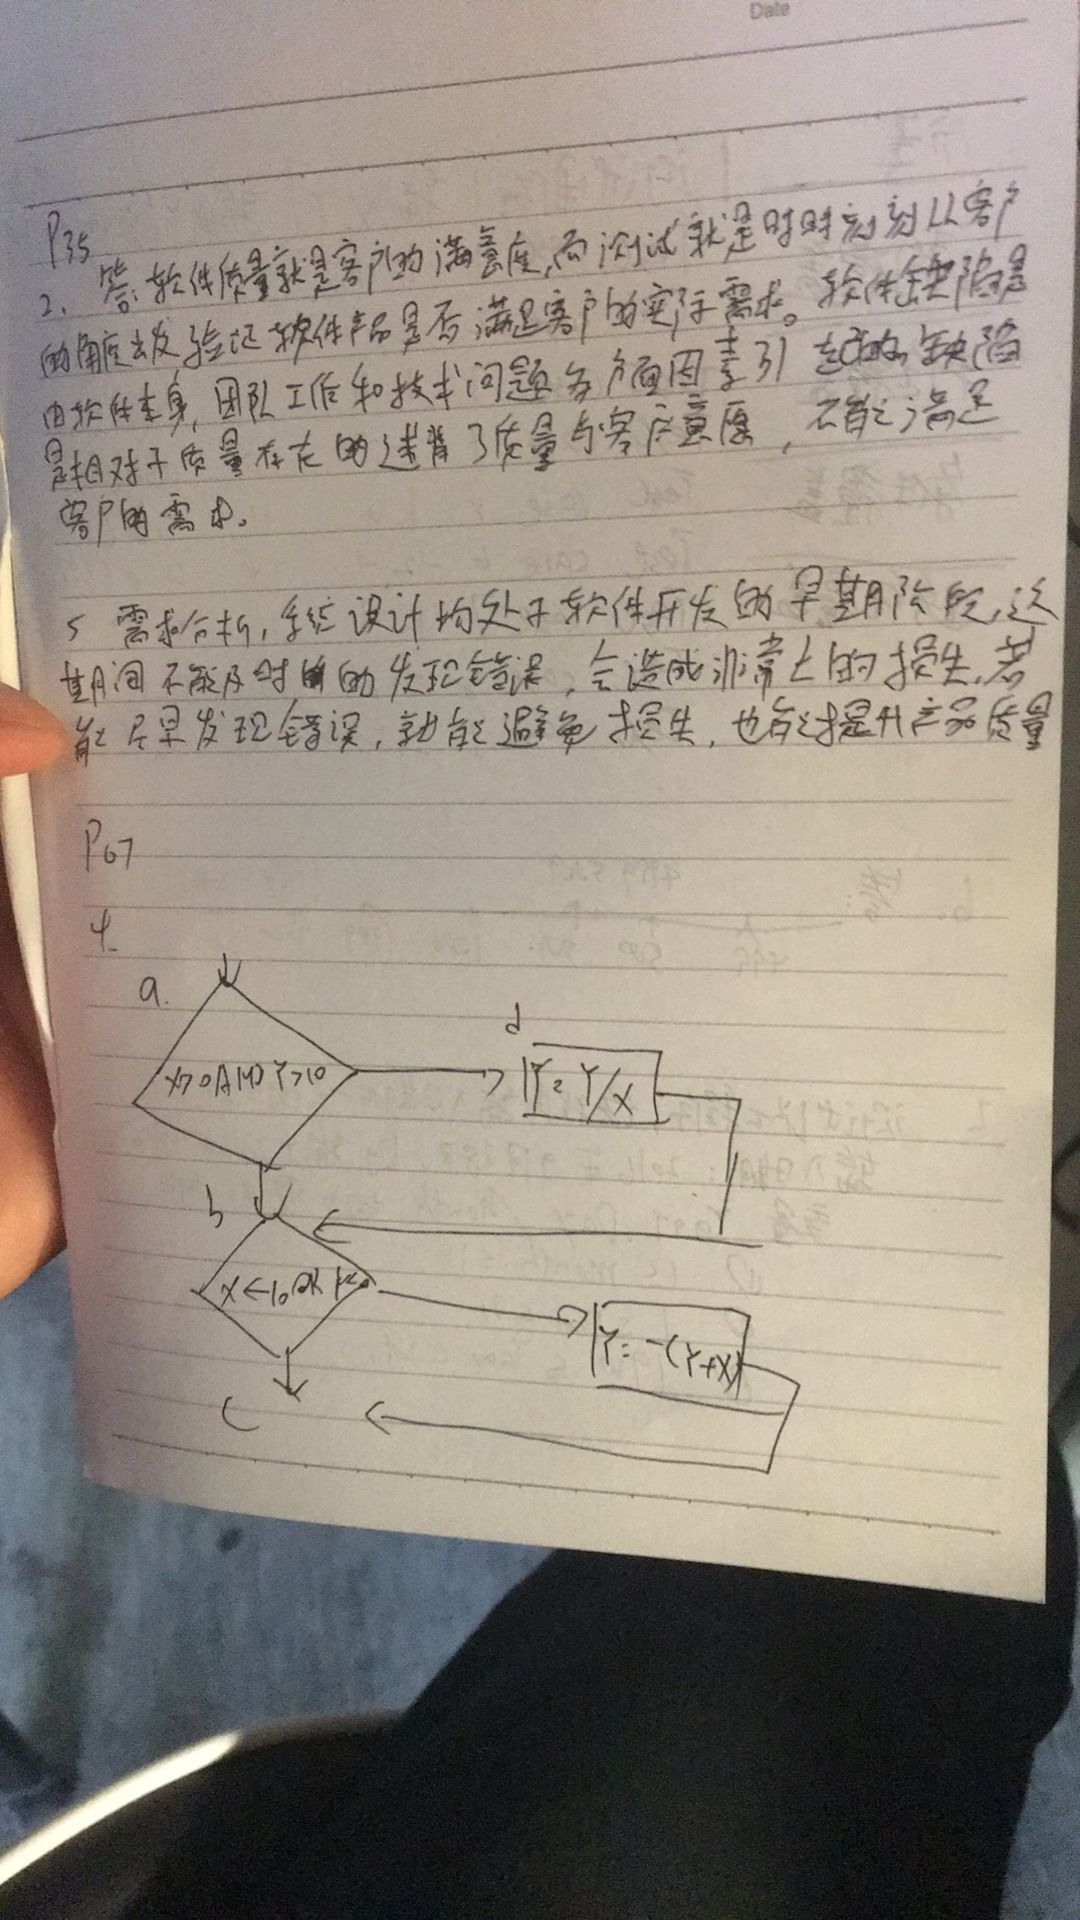 Date
P35
2. 答: 软件质量就是客户的满意度,而测试就是时时刻刻从客户
的角度出发验证软件产品是否满足客户的实际需求。软件缺陷是
由软件本身,团队工作和技术问题多方面因素引起的,缺陷
是相对于质量存在的违背了质量与客户意愿,不能满足
客户的需求。
5 需求分析,系统设计均处于软件开发的早期阶段,这
期间不能及时的发现错误,会造成非常大的损失,若
能尽早发现错误,就能避免损失,也能提升产品质量
P67
4
a.
d
X>0 AND Y>10
Y=Y/X
b
X<-10 OR
Y=-(Y+X)
C